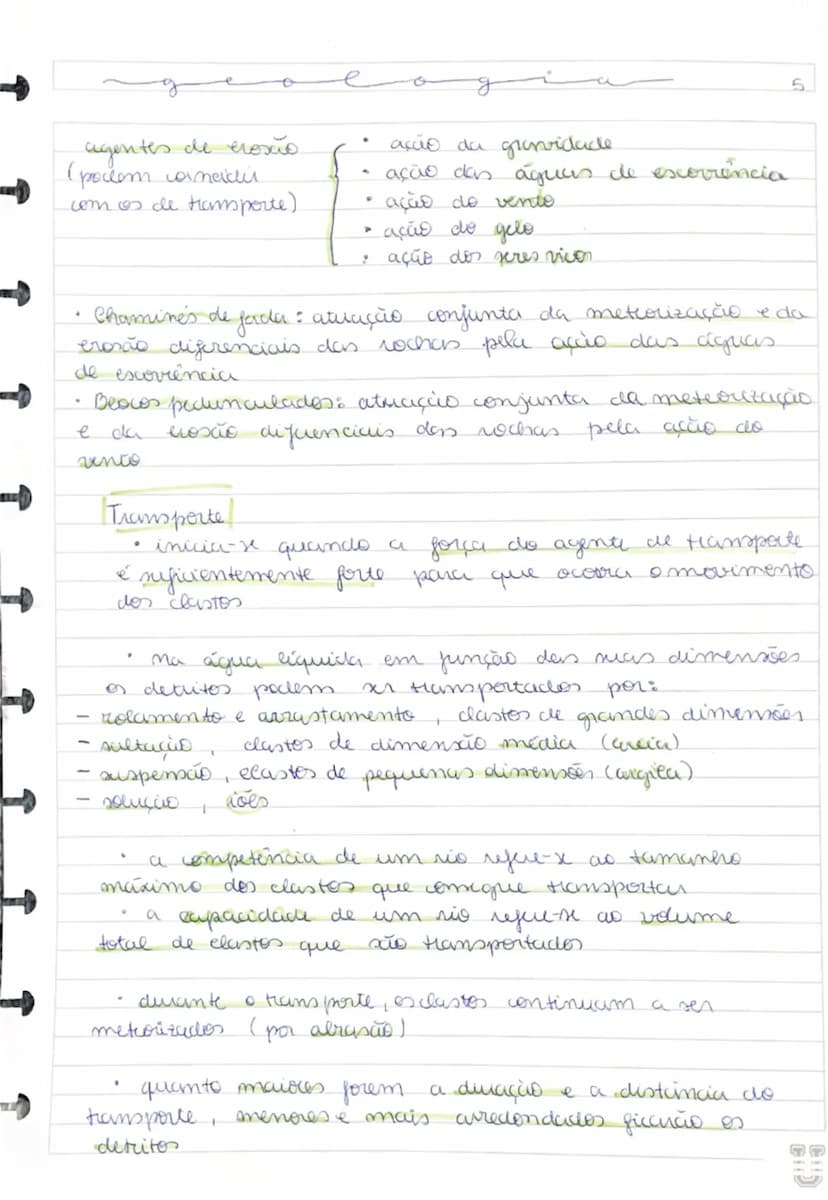 geologia
5
agentes de erosão
(podem coincidir
com os de transporte)
• ação da gravidade
• ação das águas de escorrência
• ação do vento
• ação do gelo
• ação dos seres vivos
• Chaminés de fada: atuação conjunta da meteorização e da
erosão diferenciais das rochas pela ação das águas
de escorrência
• Blocos pedunculados: atuação conjunta da meteorização
e da erosão diferenciais das rochas pela ação do
vento
Transporte
• inicia-se quando a força do agente de transporte
é suficientemente forte para que ocorra o movimento
dos clastos
• na água líquida em função das suas dimensões
os detritos podem ser transportados por:
- rolamento e arrastamento, clastos de grandes dimensões
- saltação, clastos de dimensão média (areia)
- suspensão, clastos de pequenas dimensões (argila)
- solução, iões
• a competência de um rio refere-se ao tamanho
máximo dos clastos que consegue transportar
• a capacidade de um rio refere-se ao volume
total de clastos que são transportados
• durante o transporte, os clastos continuam a ser
meteorizados (por abrasão)
• quanto maiores forem a duração e a distância do
transporte, menores e mais arredondados ficarão os
detritos
U